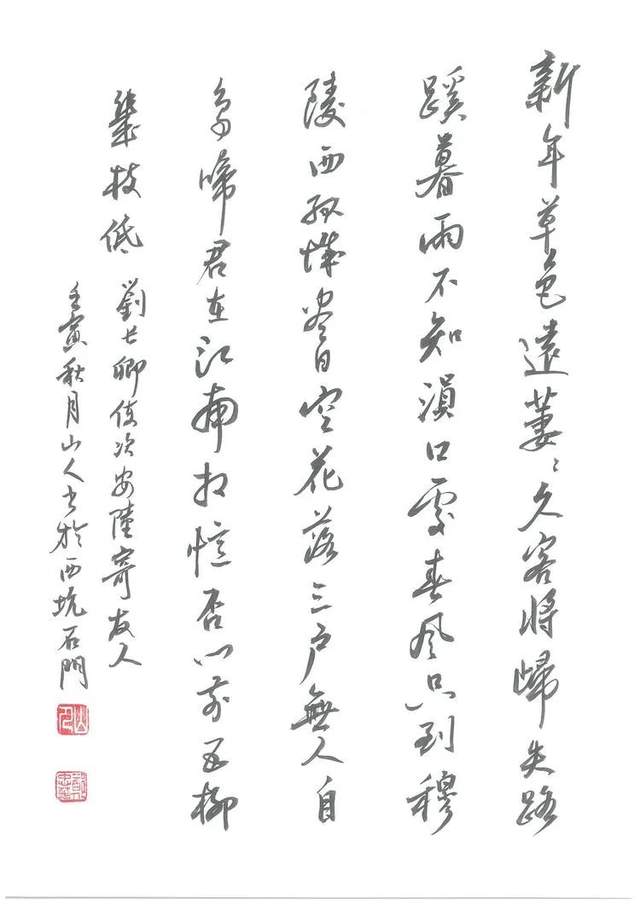 新年草色遠萋〻久客將歸失路
蹊暮雨不知溳口處春風只到穆
陵西孤城盡日空花落三戶無人自
鳥啼君在江南相憶否門前五柳
幾枝低 劉長卿使次安陸寄友人
壬寅秋月山人書於西坑石門